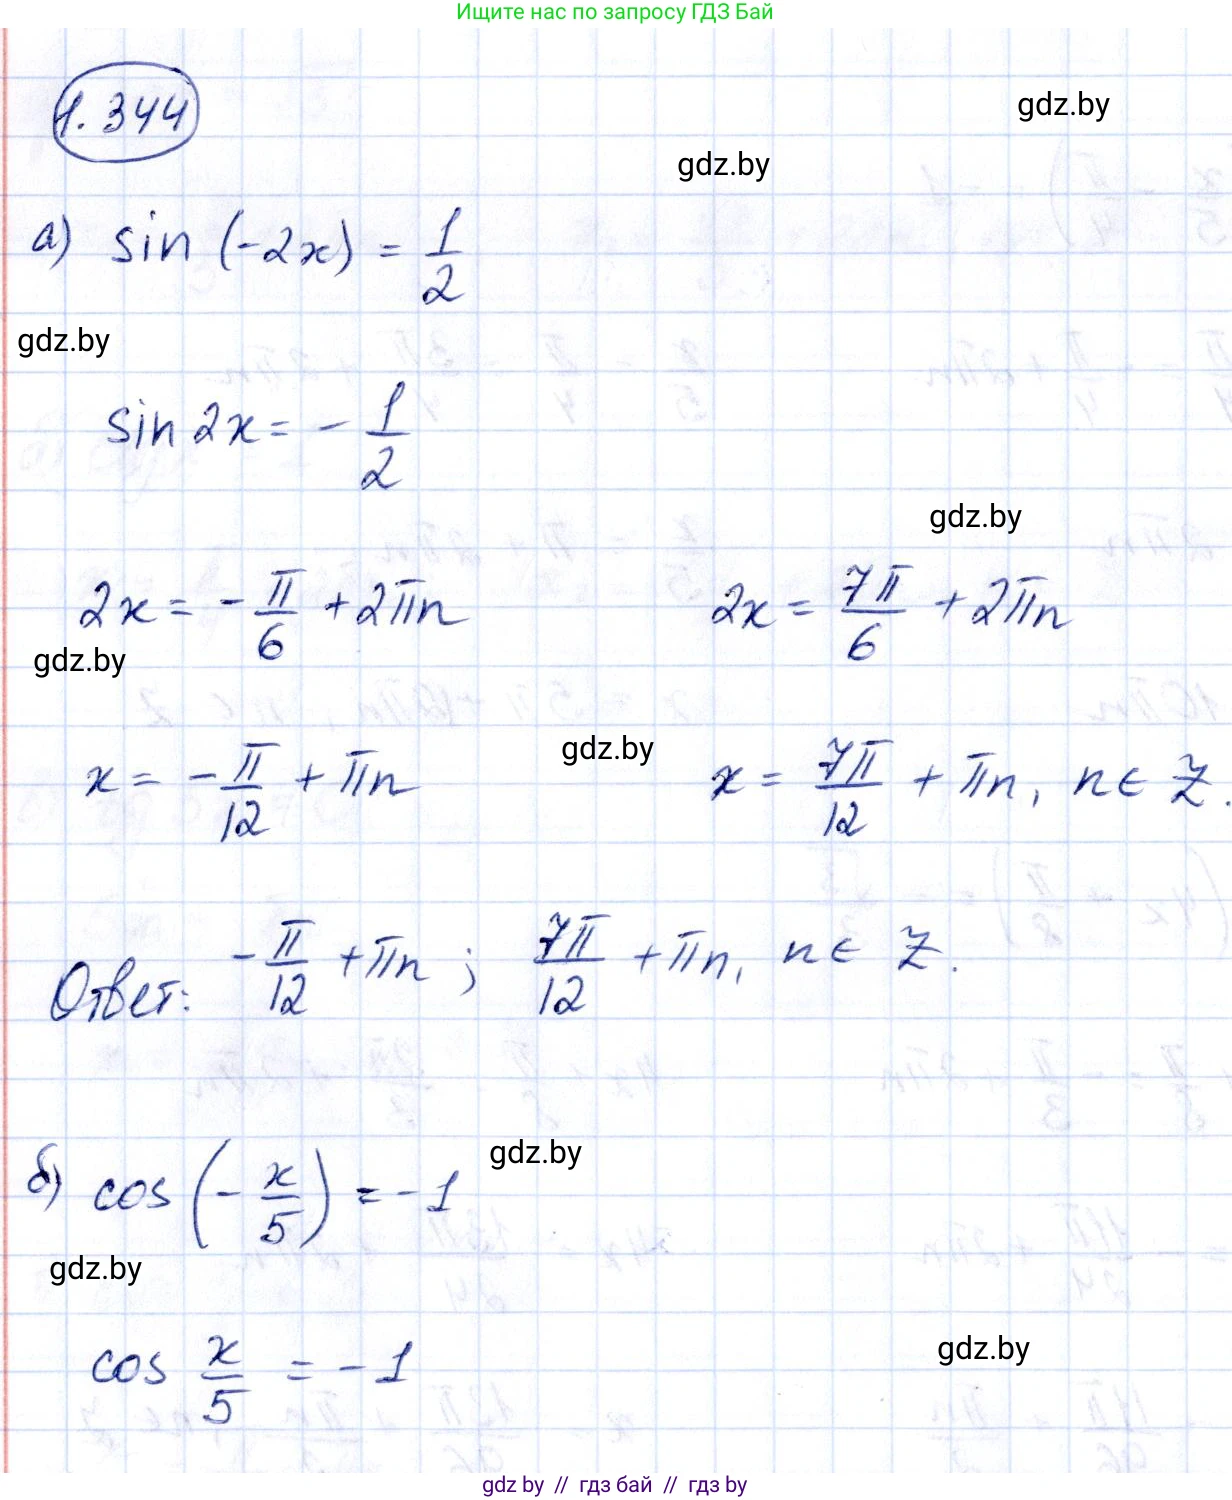 Ищите нас по запросу ГДЗ Бай
1.344
gdz.by
gdz.by
а) sin (-2x) = 1/2
gdz.by
sin 2x = - 1/2
gdz.by
2x = - π/6 + 2πn 2x = 7π/6 + 2πn
gdz.by
gdz.by
x = - π/12 + πn x = 7π/12 + πn, n ∈ Z.
Ответ: - π/12 + πn ; 7π/12 + πn, n ∈ Z.
gdz.by
б) cos (- x/5) = -1
gdz.by
gdz.by
cos x/5 = -1
gdz by // гдз бай // гдз by